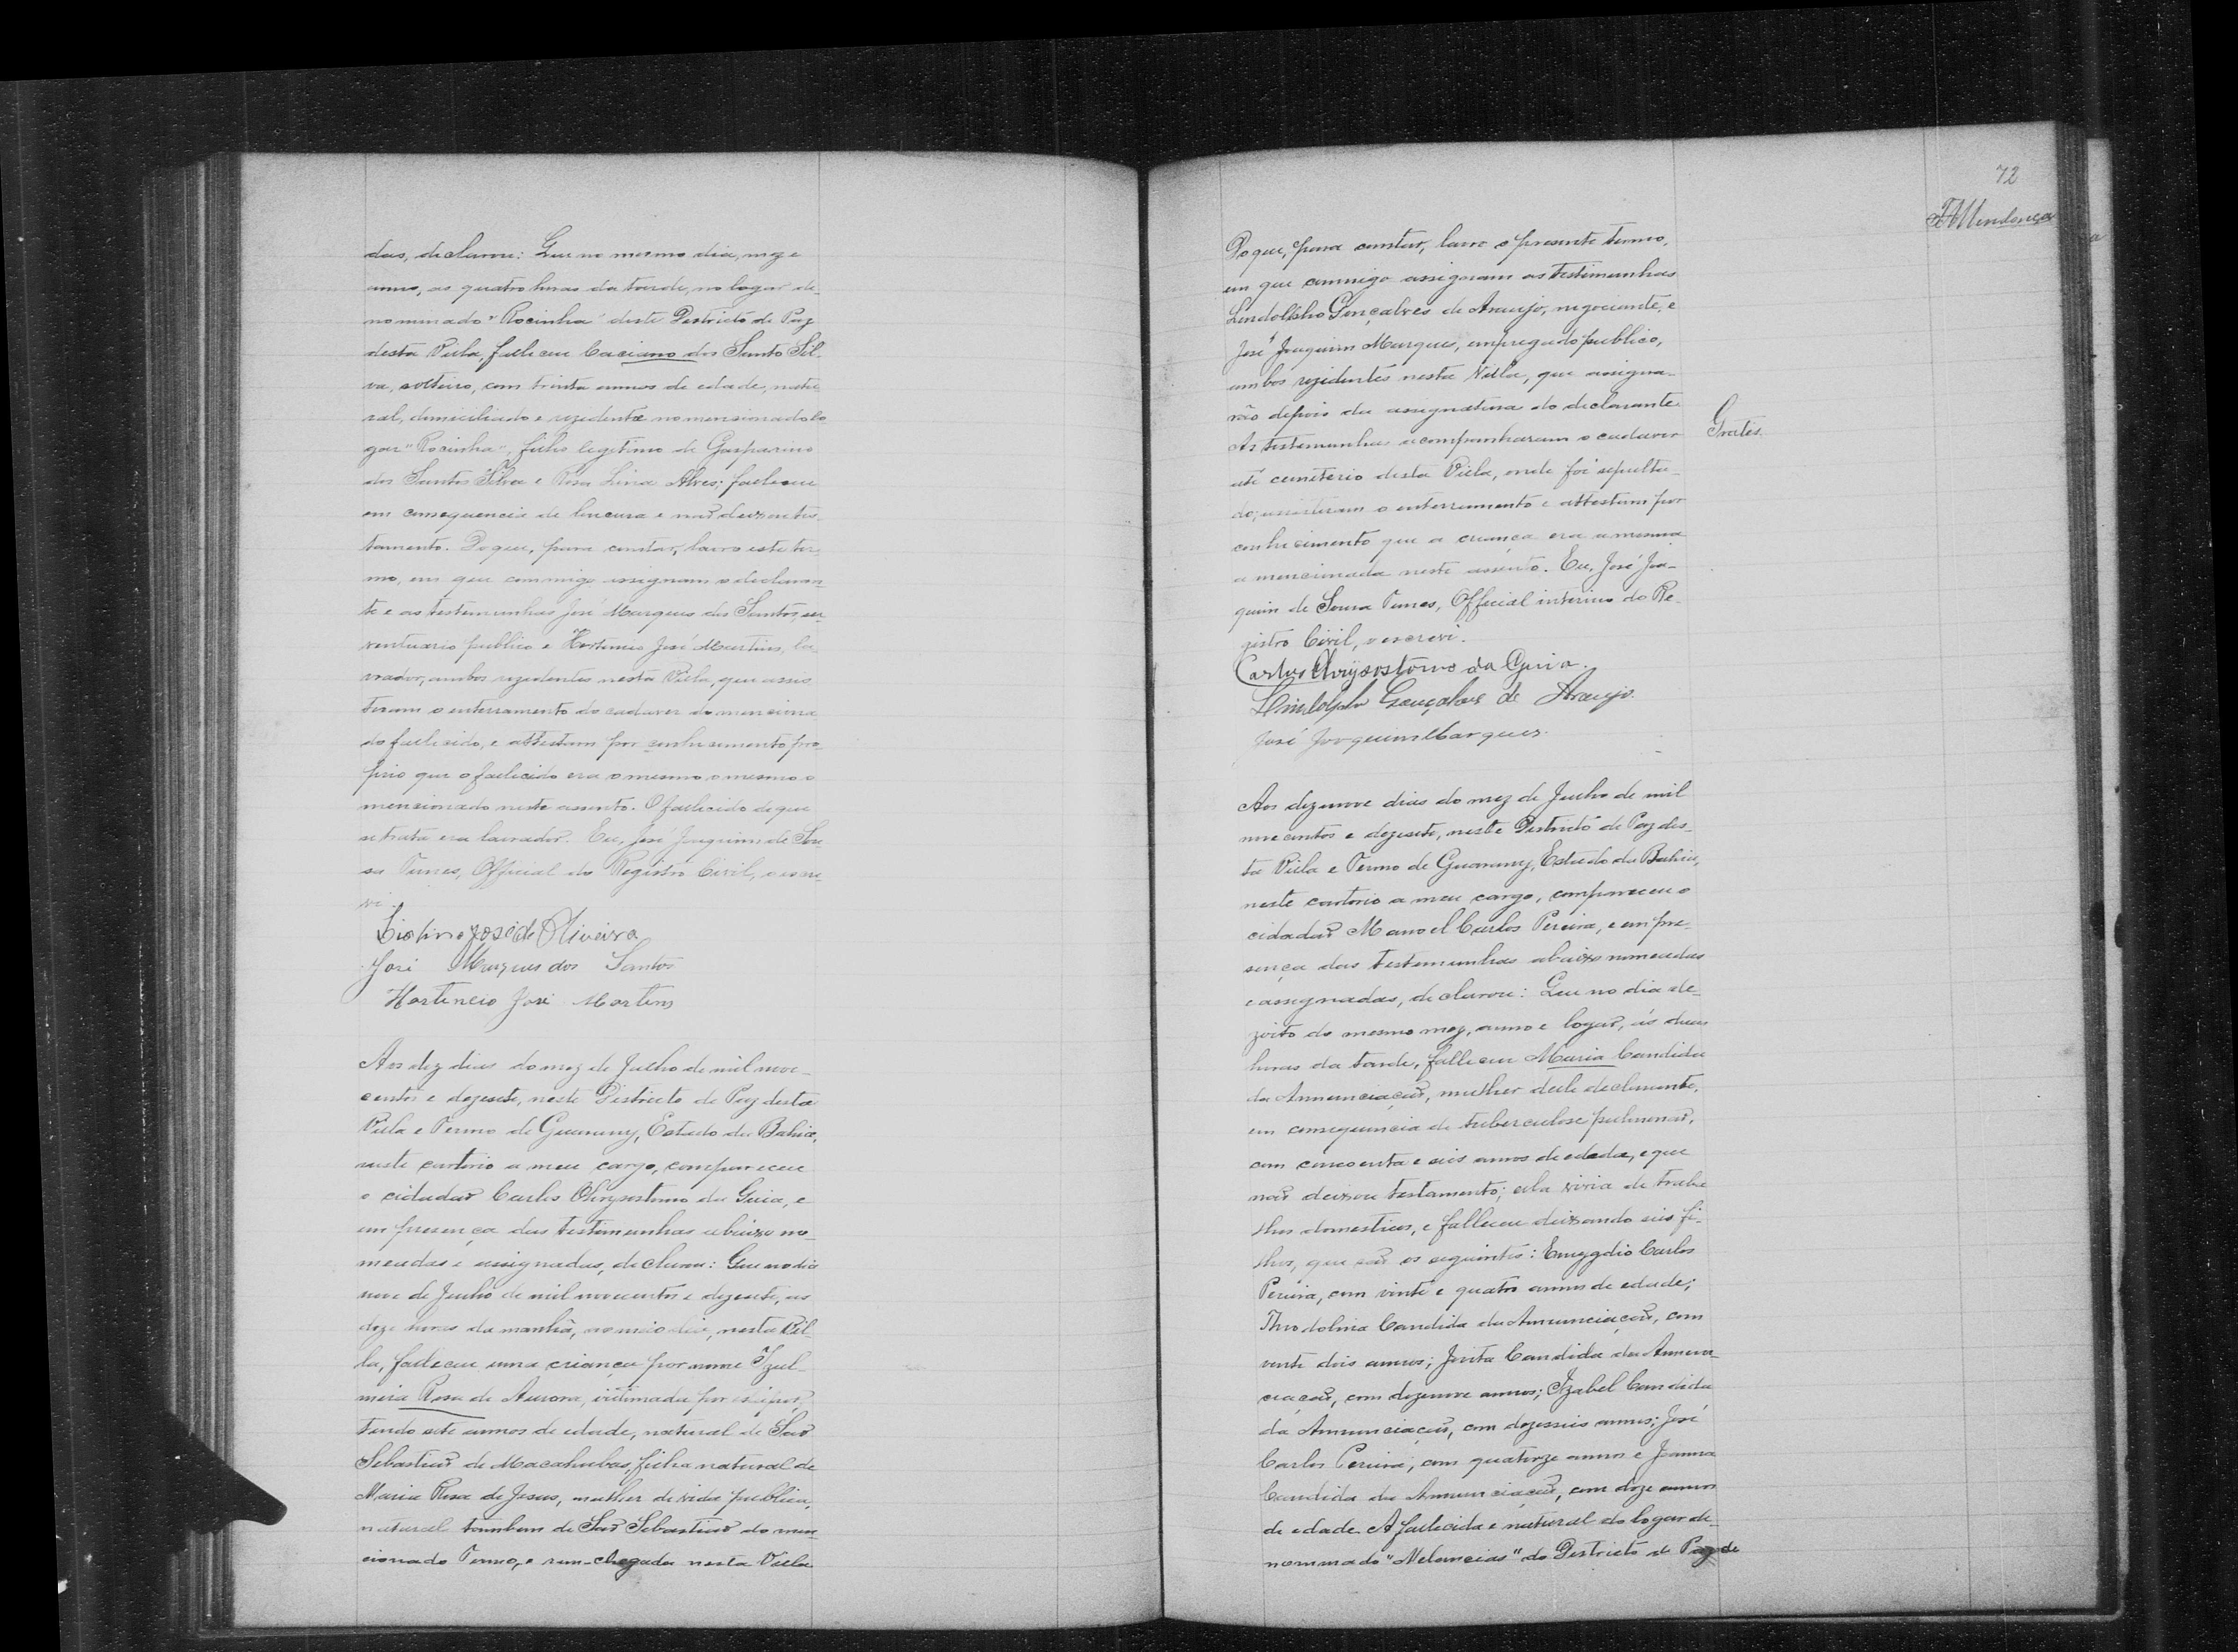 das, declarou: Que no mesmo dia, mez e
anno, as quatro horas da tarde, no logar de-
nominado "Rocinha" deste Districto de Paz
desta Villa, falleceu Caciano dos Santo Sil-
va, solteiro, com trinta annos de edade, natu-
ral, domiciliado e rezidente no mencionado lo
gar "Rocinha", filho legitimo de Gasparino
dos Santos Silva e Rosa Lina Alves; falleceu
em consequencia de loucura e não deixou tes-
tamento. Do que, para constar, lavro este ter-
mo, em que commigo assignam o declaran-
te e as testemunhas José Marques dos Santos, ser-
ventuario publico e Hortencio José Martins, la-
vrador, ambos rezidentes nesta Villa, que assis
tiram o enterramento do cadaver do menciona
do fallecido, e attestam por conhecimento pro-
prio que o fallecido era o mesmo o mesmo o
mencionado neste assento. O fallecido de que
se trata era lavrador. Eu, José Joaquim de Sou-
sa Tunes, Official do Registro Civil, o escre-
vi.
José de Oliveira
José Marques dos Santos
Hortencio José Martins
Aos dez dias do mez de Julho de mil nove-
centos e dezesete, neste Districto de Paz desta
Villa e Termo de Guarany, Estado da Bahia,
neste cartorio a meu cargo, compareceu
o cidadão Carlos Chrysostomo da Guia, e
em presença das testemunhas abaixo no-
meadas e assignadas, declarou: Que no dia
nove de Junho de mil novecentos e dezesete, as
doze horas da manhã, ao meio dia, nesta Vil-
la, falleceu uma criança por nome Izul-
meira Rosa de Aurora, victimada por
tendo sete annos de edade, natural de São
Sebastião de Macahubas, filha natural de
Maria Rosa de Jesus, mulher de vida publica,
natural tambem de São Sebastião do men
cionado Termo, e rem-chegada nesta Villa
72
Mendonça
Do que, para constar, lavro o presente termo,
em que commigo assignam as testemunhas
Lindolpho Gonçalves de Araujo, negociante, e
José Joaquim Marques, empregado publico,
ambos rezidentes nesta Villa, que assigna-
rão depois da assignatura do declarante.
As testemunhas acompanharam o cadaver
até cemiterio desta Villa, onde foi sepulta-
do; assistiram o enterramento e attestam por
conhecimento que a criança era a mesma
a mencionada neste assento. Eu, José Joa-
quim de Sousa Tunes, Official interino do Re-
gistro Civil, o escrevi.
Gratis.
Carlos Chrysostomo da Guia.
Lindolpho Gonçalves de Araujo.
José Joaquim Marques.
Aos dezenove dias do mez de Junho de mil
nove centos e dezesete, neste Districto de Paz des-
ta Villa e Termo de Guarany, Estado da Bahia,
neste cartorio a meu cargo, compareceu o
cidadão Manoel Carlos Pereira, e em pre-
sença das testemunhas abaixo nomeadas
e assignadas, declarou: Que no dia de-
zoito do mesmo mez, anno e logar, ás duas
horas da tarde, falleceu Maria Candida
da Annunciação, mulher delle declarante,
em consequencia de tuberculose pulmonar,
com cincoenta e seis annos de edade, e que
não deixou testamento; ella vivia de traba
lhos domesticos, e falleceu deixando seis fi-
lhos, que são os seguintes: Emygdio Carlos
Pereira, com vinte e quatro annos de edade;
Theodolina Candida da Annunciação, com
vinte dois annos; Jovita Candida da Annun-
ciação, com dezenove annos; Izabel Candida
da Annunciação, com dezesseis annos; José
Carlos Pereira, com quatorze annos e Joanna
Candida da Annunciação, com doze annos
de edade. A fallecida e natural do logar de-
nominado "Melancias" do Districto de Paz de